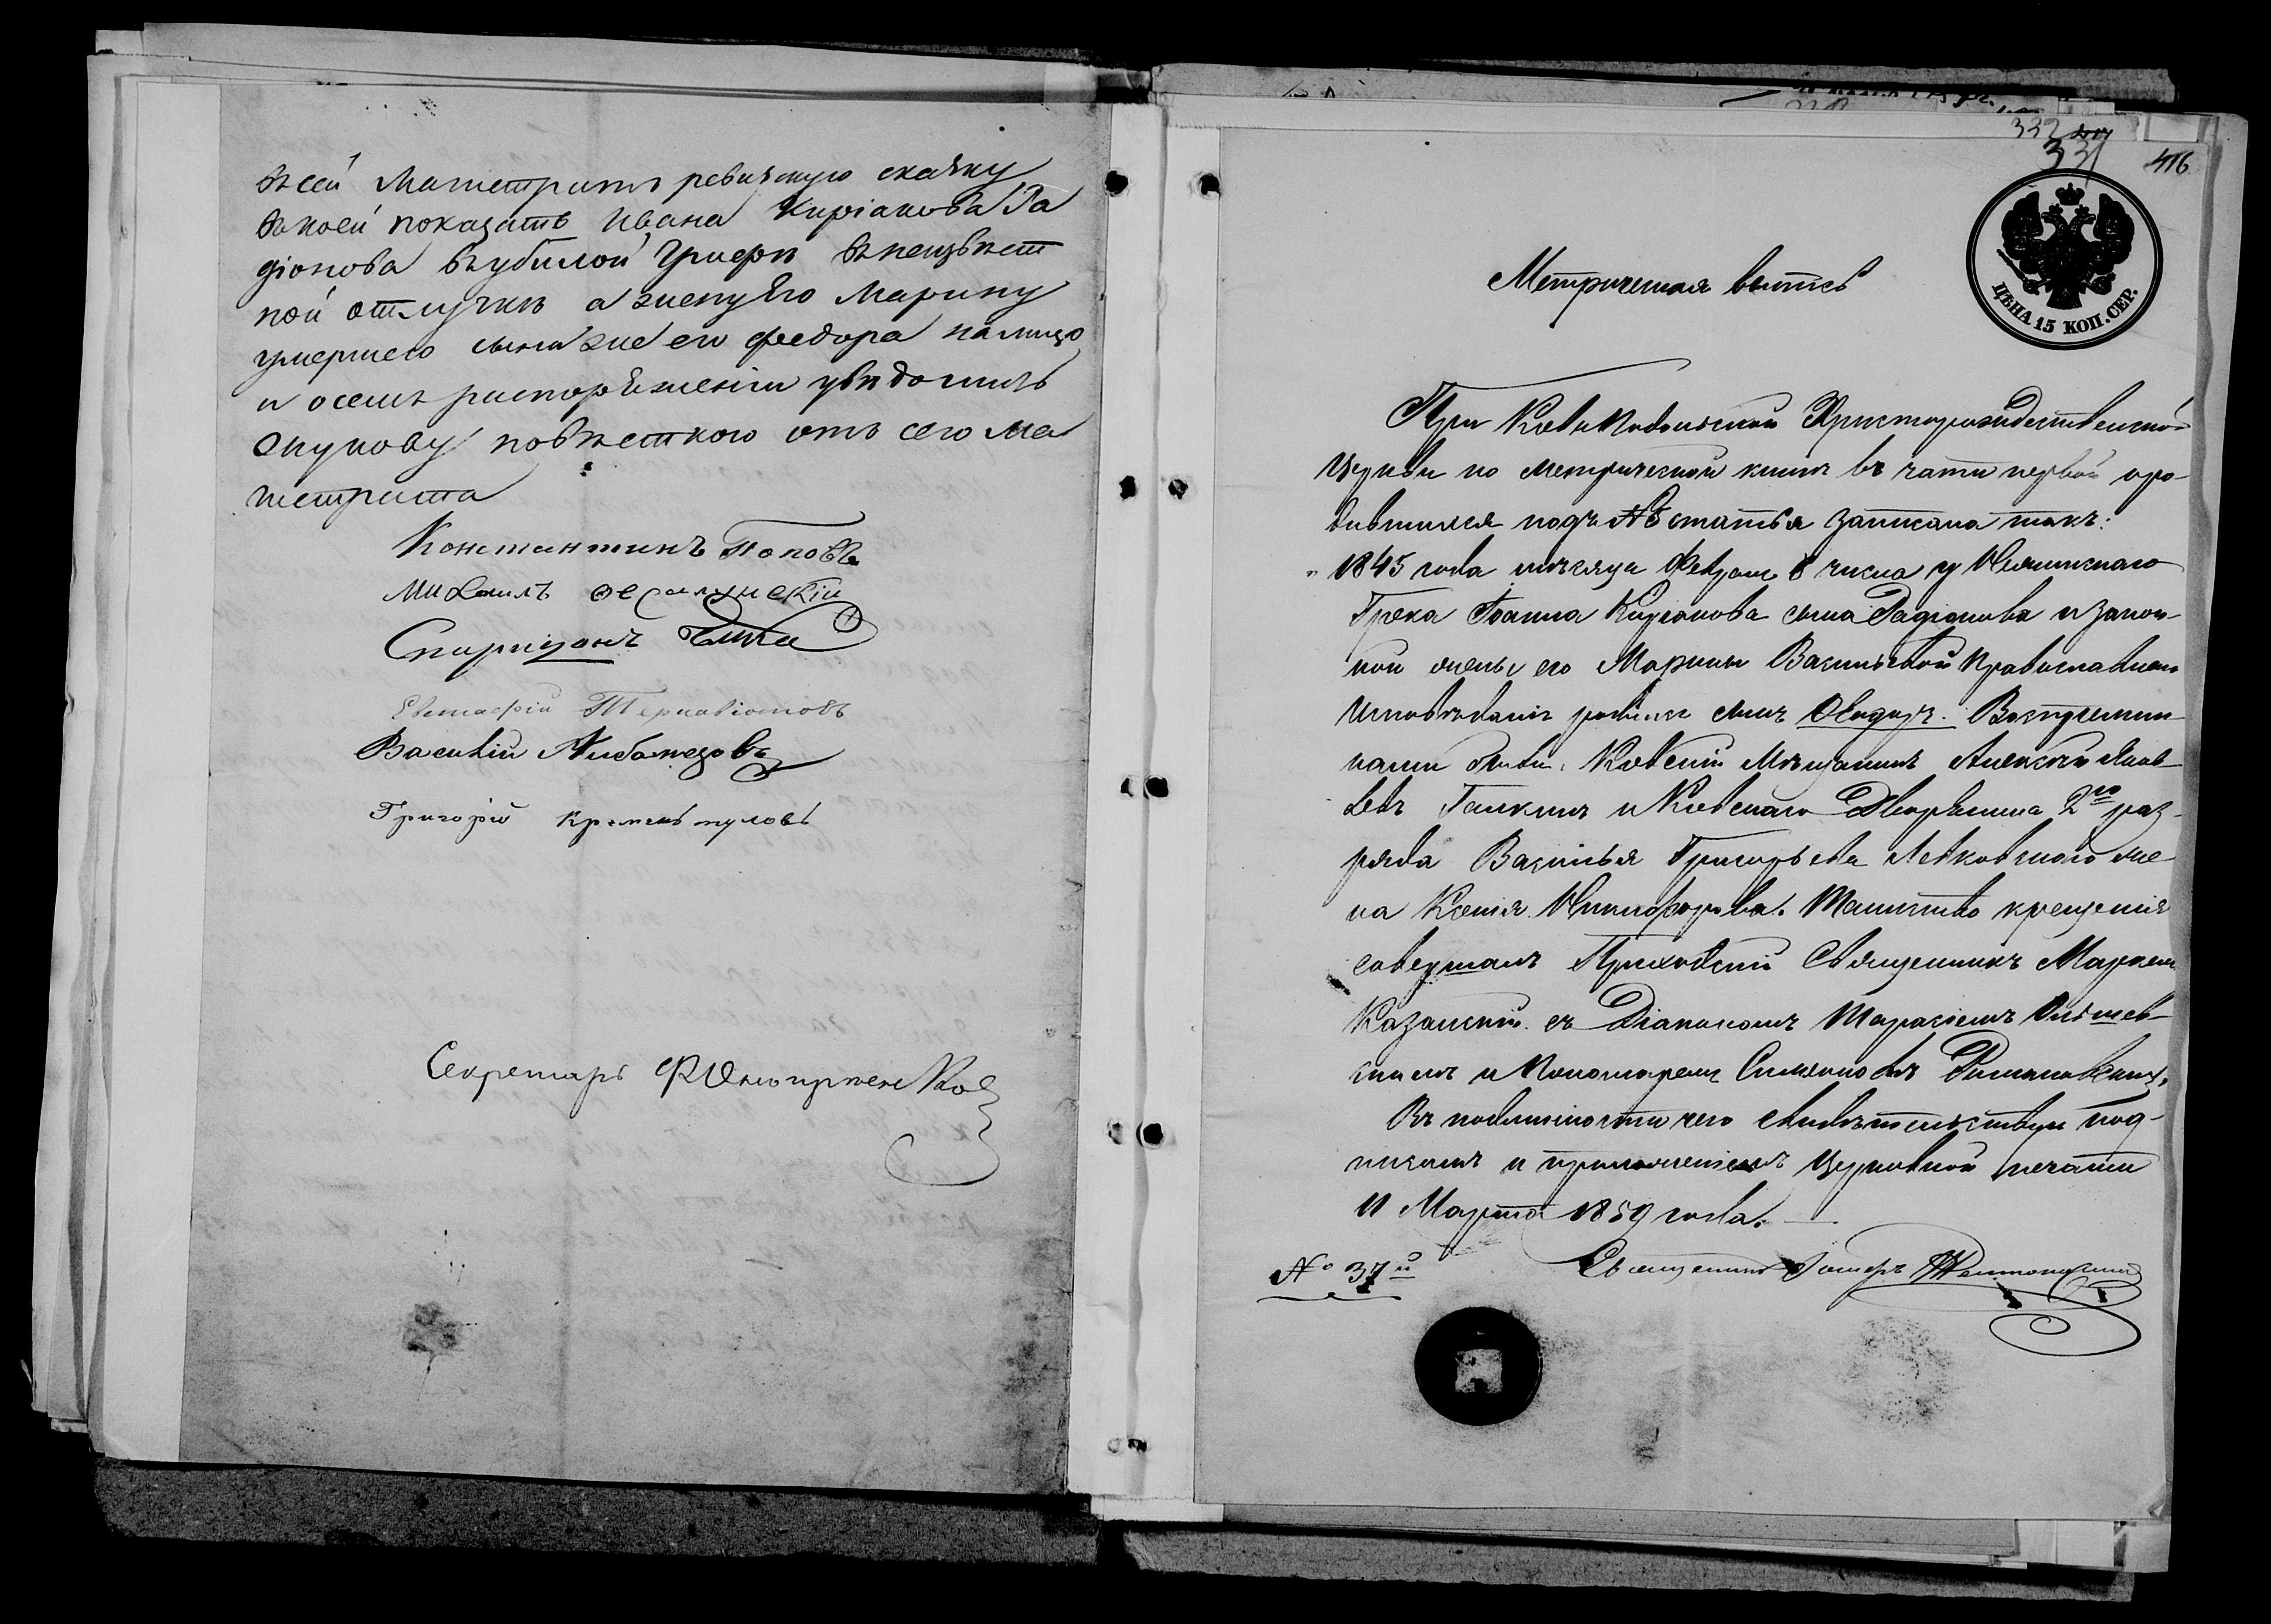 въ сей Магистратъ ревизскую сказку
въ коей показать Ивана Киріакова Ра
діонова въ убылой графѣ въ неизвѣст
ной отлучкѣ а жену Его Марину
умершего сына же его федора на лицо
и о семъ распоряженіи увѣдомить
опукову повѣсткою отъ сего Ма
гистрата
Константинъ Поповъ
Михаилъ
Спиридонъ
Евстафій
Василій
Григорій
Секретарь
332
331
416
ЦѢНА 15 КОП. СЕР.
Метрическая выпись
При Кіево Подольской Христорождественской
Церкви по метрической книгѣ въ части первой о ро-
дившихся подъ № 8 статья записана такъ:
„1845 года мѣсяца Февраля 8 числа у Нѣжинскаго
Грека Іоанна Киріакова сына Радіонова и закон-
ной жены его Марины Васильевой Православнаго
Исповѣданія родился сынъ Ѳеодоръ. Воспріемни-
ками были: Кіевскій Мѣщанинъ Алексѣй Яков-
левъ Галкинъ и Кіевскаго Дворянина 2го раз-
ряда Василья Григорьева Левковскаго же-
на Ксенія Никифорова. Таинство крещенія
совершалъ Приходскій Священникъ Маркелъ
Казанскій съ Діакономъ Тарасіемъ
скимъ и Пономаремъ
Въ подлинности чего свидѣтельствую под-
писомъ и приложеніемъ Церковной печати
11 Марта 1859 года.
№ 37й
Священникъ